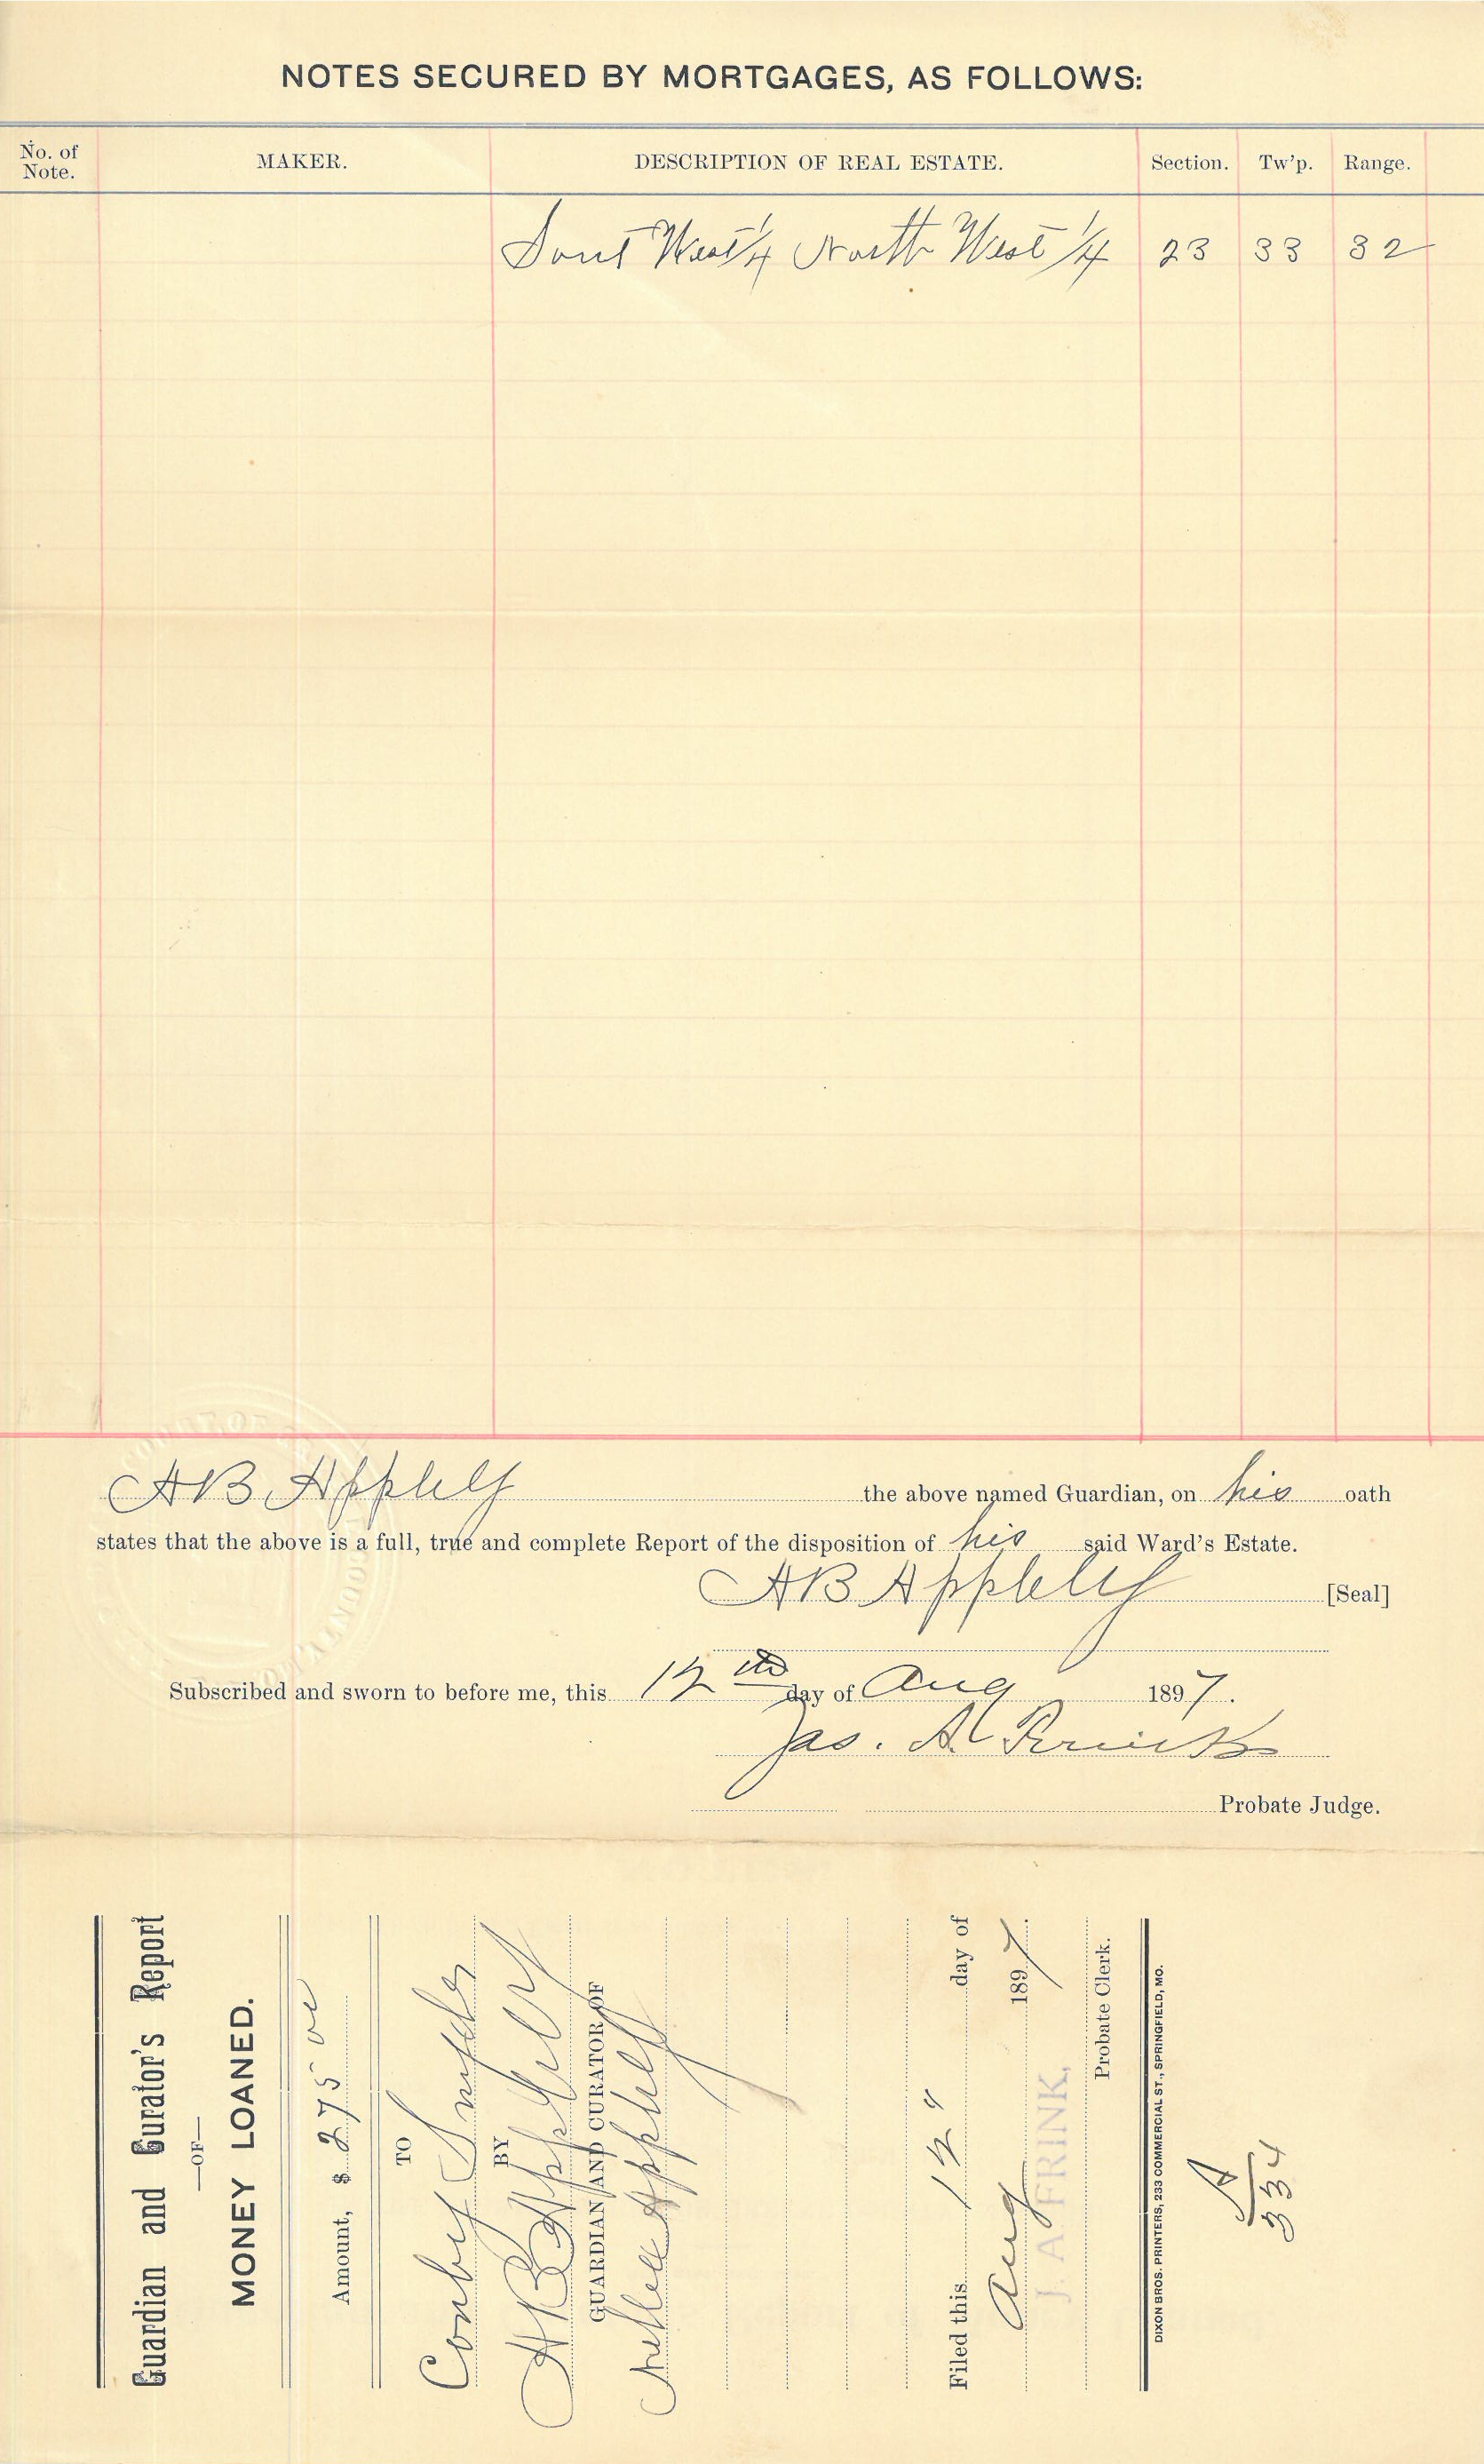 NOTES SECURED BY MORTGAGES, AS FOLLOWS:
No. of Note. MAKER. DESCRIPTION OF REAL ESTATE. Section. Tw'p. Range.
Sout West 1/4 North West 1/4 23 33 32
AB Appleby the above named Guardian, on his oath
states that the above is a full, true and complete Report of the disposition of his said Ward's Estate.
AB Appleby [Seal]
Subscribed and sworn to before me, this 12th day of Aug 1897.
Jas. A. Frink
Probate Judge.
Guardian and Curator's Report
—OF—
MONEY LOANED.
Amount, $ 275 00
TO
Conby Snyder
BY
AB Appleby
GUARDIAN AND CURATOR OF
Nellie Appleby
Filed this 12" day of
Aug 1897.
J. A. FRINK,
Probate Clerk.
DIXON BROS. PRINTERS, 233 COMMERCIAL ST., SPRINGFIELD, MO.
A
334